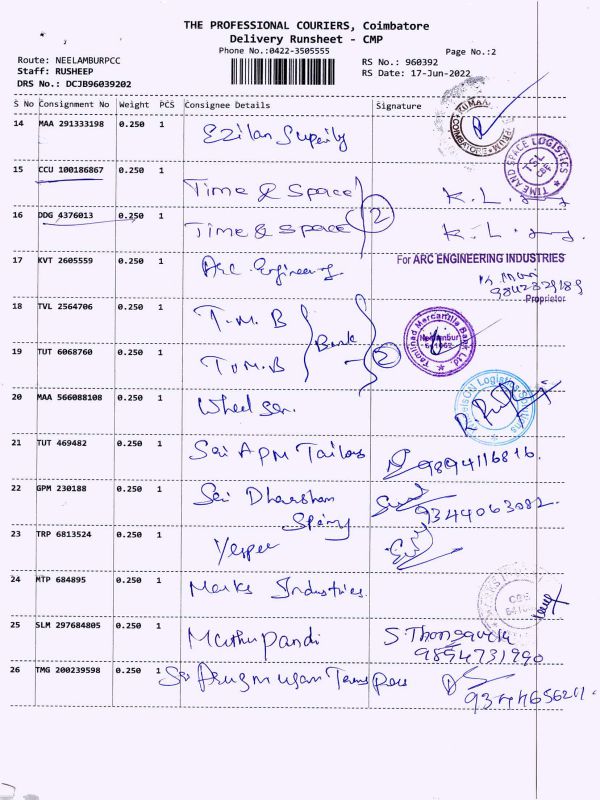 THE PROFESSIONAL COURIERS, Coimbatore
Delivery Runsheet - CMP
Phone No.:0422-3505555
Page No.:2
Route: NEELAMBURPCC
RS No.: 960392
Staff: RUSHEEP
RS Date: 17-Jun-2022
DRS No.: DCJB96039202
S No Consignment No Weight PCS Consignee Details Signature
14 MAA 291333198 0.250 1
15 CCU 100186867 0.250 1 Time & Space K.L.
TIME AND SPACE LOGISTICS TSL CBE
16 DDG 4376013 0.250 1 Time & Space K.L.
2
17 KVT 2605559 0.250 1 Arc Engineering
For ARC ENGINEERING INDUSTRIES
Proprietor
18 TVL 2564706 0.250 1 T.M.B
Bank
2
Tamilnad Mercantile Bank Ltd
19 TUT 6068760 0.250 1 T.M.B
20 MAA 566088108 0.250 1 Wheelson.
21 TUT 469482 0.250 1 Sai APM Tailors 9894116816.
22 GPM 230188 0.250 1 Sai Dharshan
9344063082.
23 TRP 6813524 0.250 1 Yesper
24 MTP 684895 0.250 1 Marks Industries.
25 SLM 297684805 0.250 1 Muthupandi
9894731990
26 TMG 200239598 0.250 1 Sri